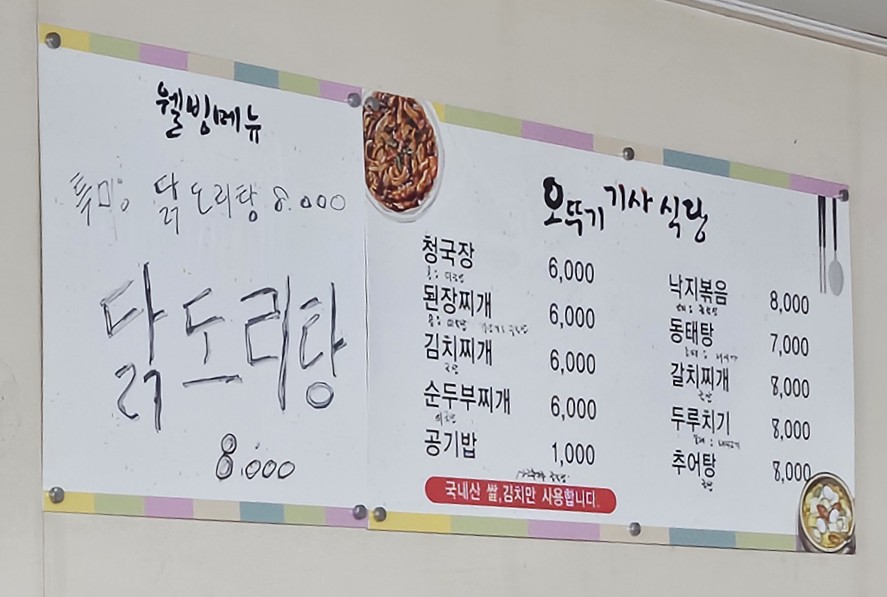 웰빙메뉴
닭도리탕 8.000
닭도리탕
8.000
오뚜기 기사 식당
청국장 6,000
된장찌개 6,000
김치찌개 6,000
순두부찌개 6,000
공기밥 1,000
국내산 쌀,김치만 사용합니다.
낙지볶음 8,000
동태탕 7,000
갈치찌개 8,000
두루치기 8,000
추어탕 8,000